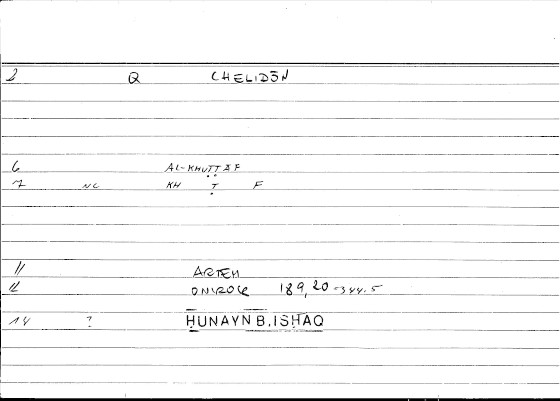 2 Q CHELIDŌN
6 AL-KHUṬṬĀF
7 NC KH Ṭ F
11 ARTEM
12 ONIROCR 189,20-344.5
14 ? ḤUNAYN B. ISḤĀQ